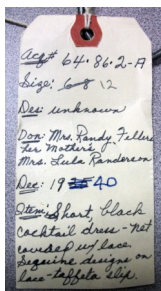 Acq# 64.86.2-A
Size: 12
Des: unknown
Don: Mrs. Randy Fellers
her Mother's
Mrs. Lula Randerson
Dec: 1940
Item: Short, black
cocktail dress - not
covered w/ lace.
Sequine designs on
lace - taffeta slip.